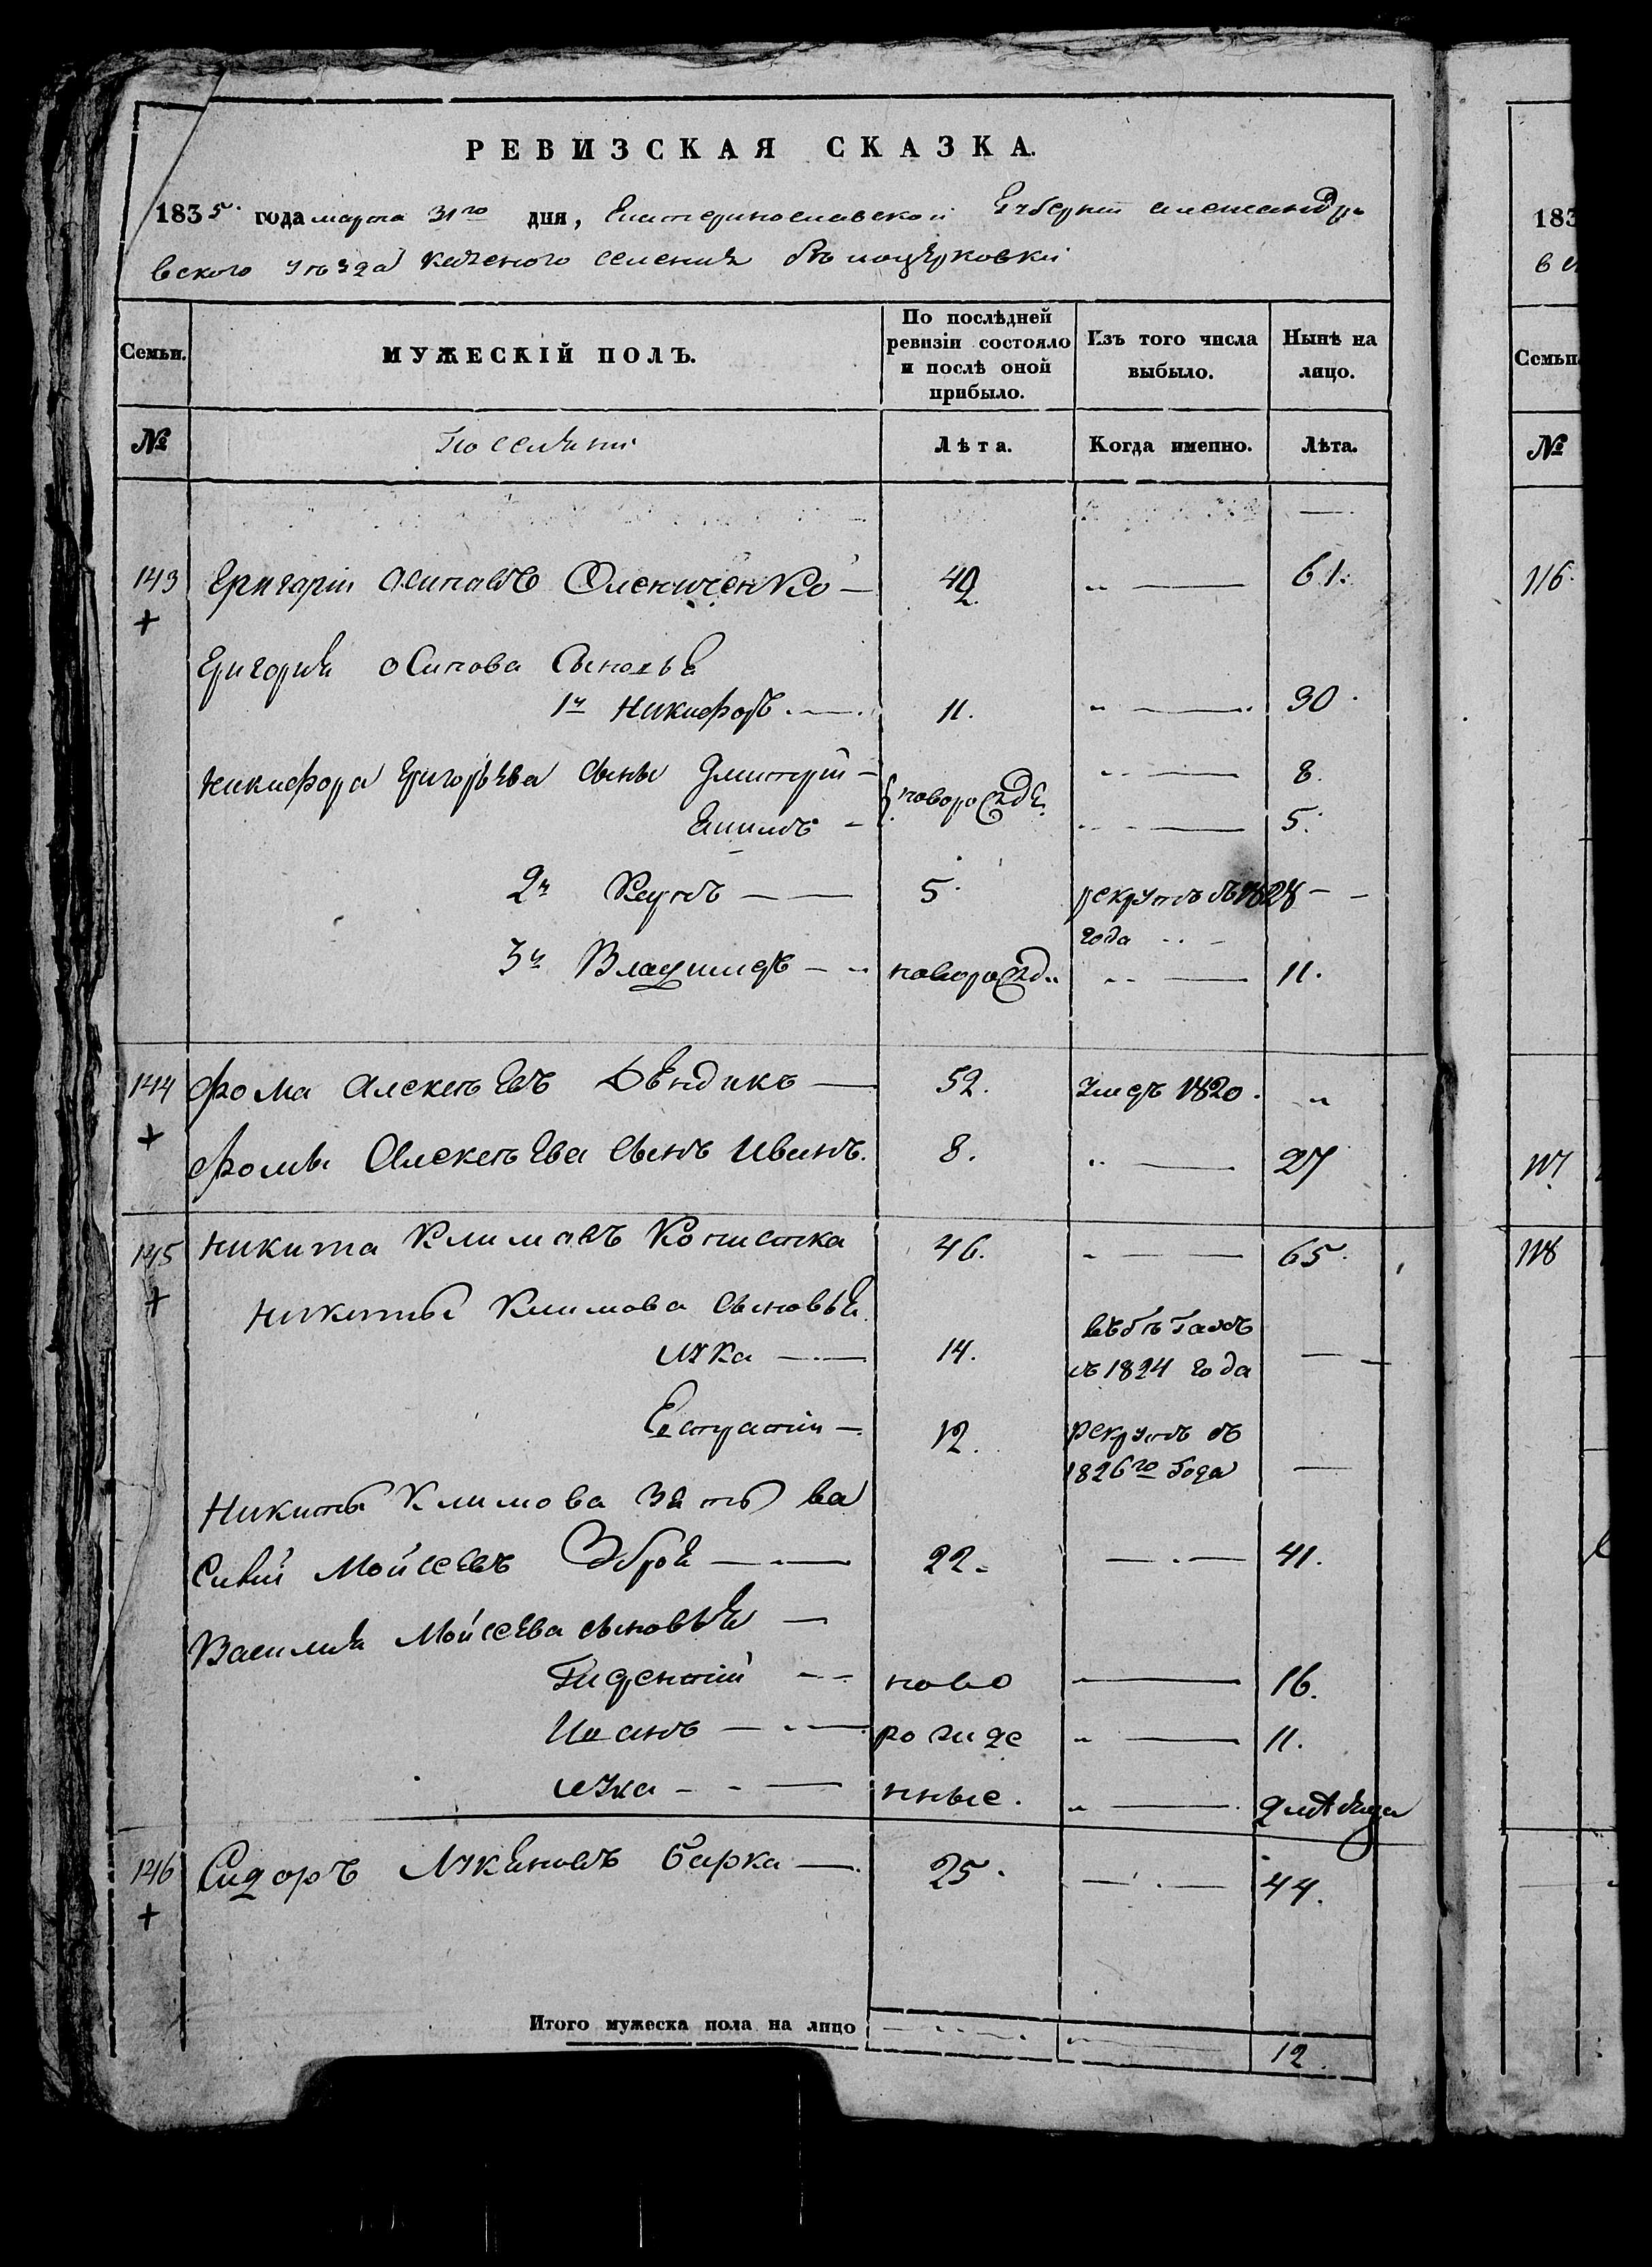 РЕВИЗСКАЯ СКАЗКА.
1835. года марта 31го дня, Екатеринославской Губерніи александро
вского уезда казеного селения белоцерковки
Семьи.
МУЖЕСКІЙ ПОЛЪ.
По послѣдней ревизіи состояло и послѣ оной прибыло.
Изъ того числа выбыло.
Нынѣ на лицо.
№
Поселяни
Лѣта.
Когда именно.
Лѣта.
143 Григорій Осиповъ Олениченко 42. 61.
Григория Осипова Сыновья
1й Никифоръ 11. 30.
Никифора Григорьева сыны Дмитрій 8.
новорожде.
Екимъ 5.
2й Карпъ 5. рекрутъ въ 1828
года
3й Владимеръ новорожд. 11.
144 Фома Алексеевъ Бендикъ 52. Умеръ 1820.
Фомы Алексеева сынъ Иванъ. 8. 27
145 Никита Климовъ Копистка 46. 65.
Никиты Климова сыновья
Лука 14. въ бегахъ
съ 1824 года
Евстратій 12. рекрутъ въ
1826го года
Никиты Климова зять Ва
силій Мойсеевъ Зброя 22. 41.
Василия Мойсеева сыновья
Терентій ново 16.
Иванъ рожде 11.
Лука нные. 2 месяца
146 Сидоръ Лукяновъ Барка 25. 44.
Итого мужеска пола на лицо 12.
183
в
Семьи
№
116.
117
118